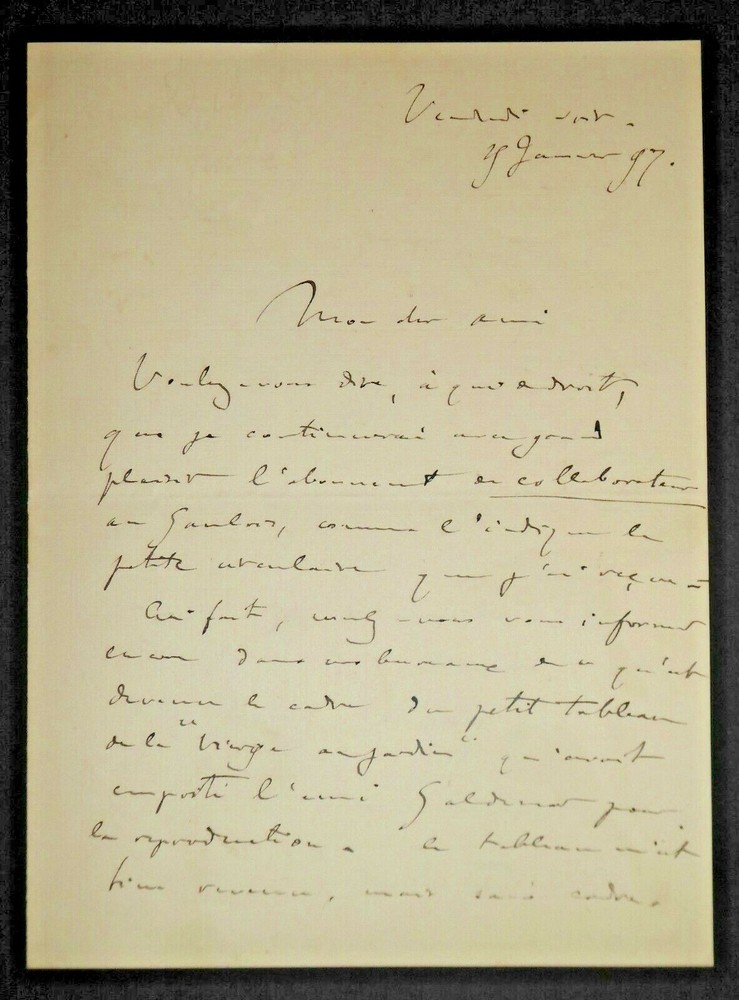 Vendredi soir.
15 Janvier 97.
Mon cher ami
Voulez-vous dire, à qui de droit,
que je continuerai avec grand
plaisir l'abonnement de collaborateur
au Gaulois, comme l'indique la
petite circulaire que j'ai reçue -
Au fait, voulez-vous vous informer
encore dans vos bureaux de ce qu'est
devenu le cadre du petit tableau
de la "Vierge au jardin" qu'avait
emporté l'ami pour
la reproduction. Le tableau m'est
bien revenu, mais sans cadre.